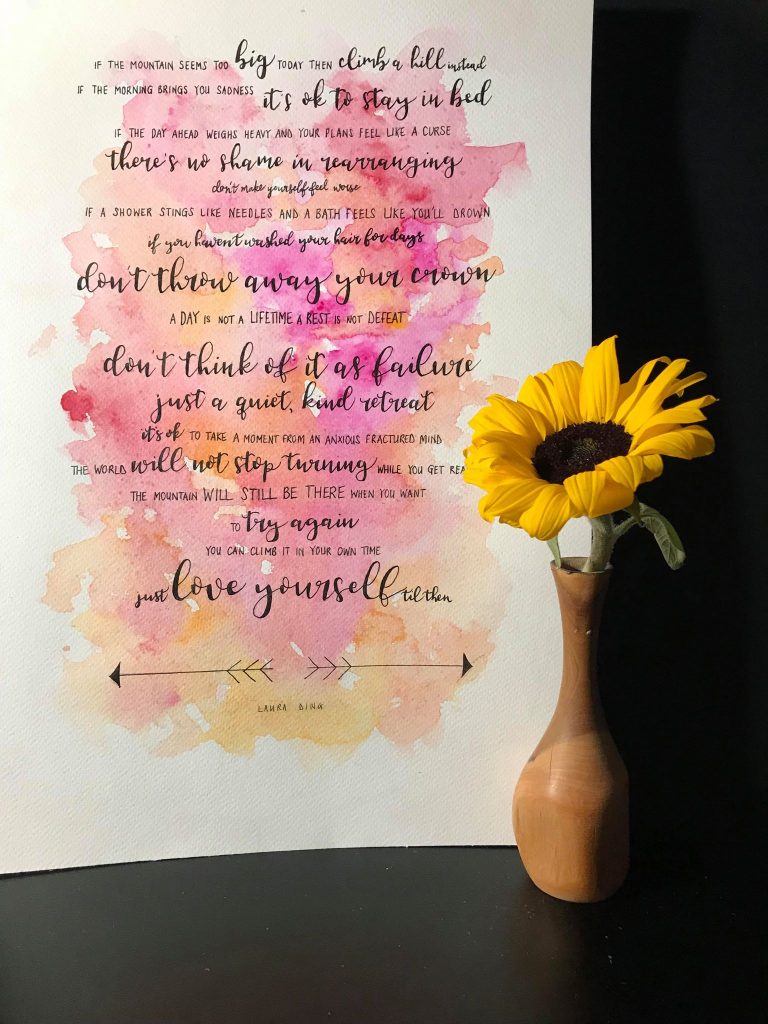 IF THE MOUNTAIN SEEMS TOO big TODAY THEN climb a hill instead
IF THE MORNING BRINGS YOU SADNESS it's ok to stay in bed
IF THE DAY AHEAD WEIGHS HEAVY AND YOUR PLANS FEEL LIKE A CURSE
there's no shame in rearranging
don't make yourself feel worse
IF A SHOWER STINGS LIKE NEEDLES AND A BATH FEELS LIKE YOU'LL DROWN
if you haven't washed your hair for days
don't throw away your crown
A DAY IS NOT A LIFETIME A REST IS NOT DEFEAT
don't think of it as failure
just a quiet, kind retreat
it's ok TO TAKE A MOMENT FROM AN ANXIOUS FRACTURED MIND
THE WORLD will not stop turning WHILE YOU GET
THE MOUNTAIN WILL STILL BE THERE WHEN YOU WANT
TO try again
YOU CAN CLIMB IT IN YOUR OWN TIME
just love yourself til then
LAURA DING